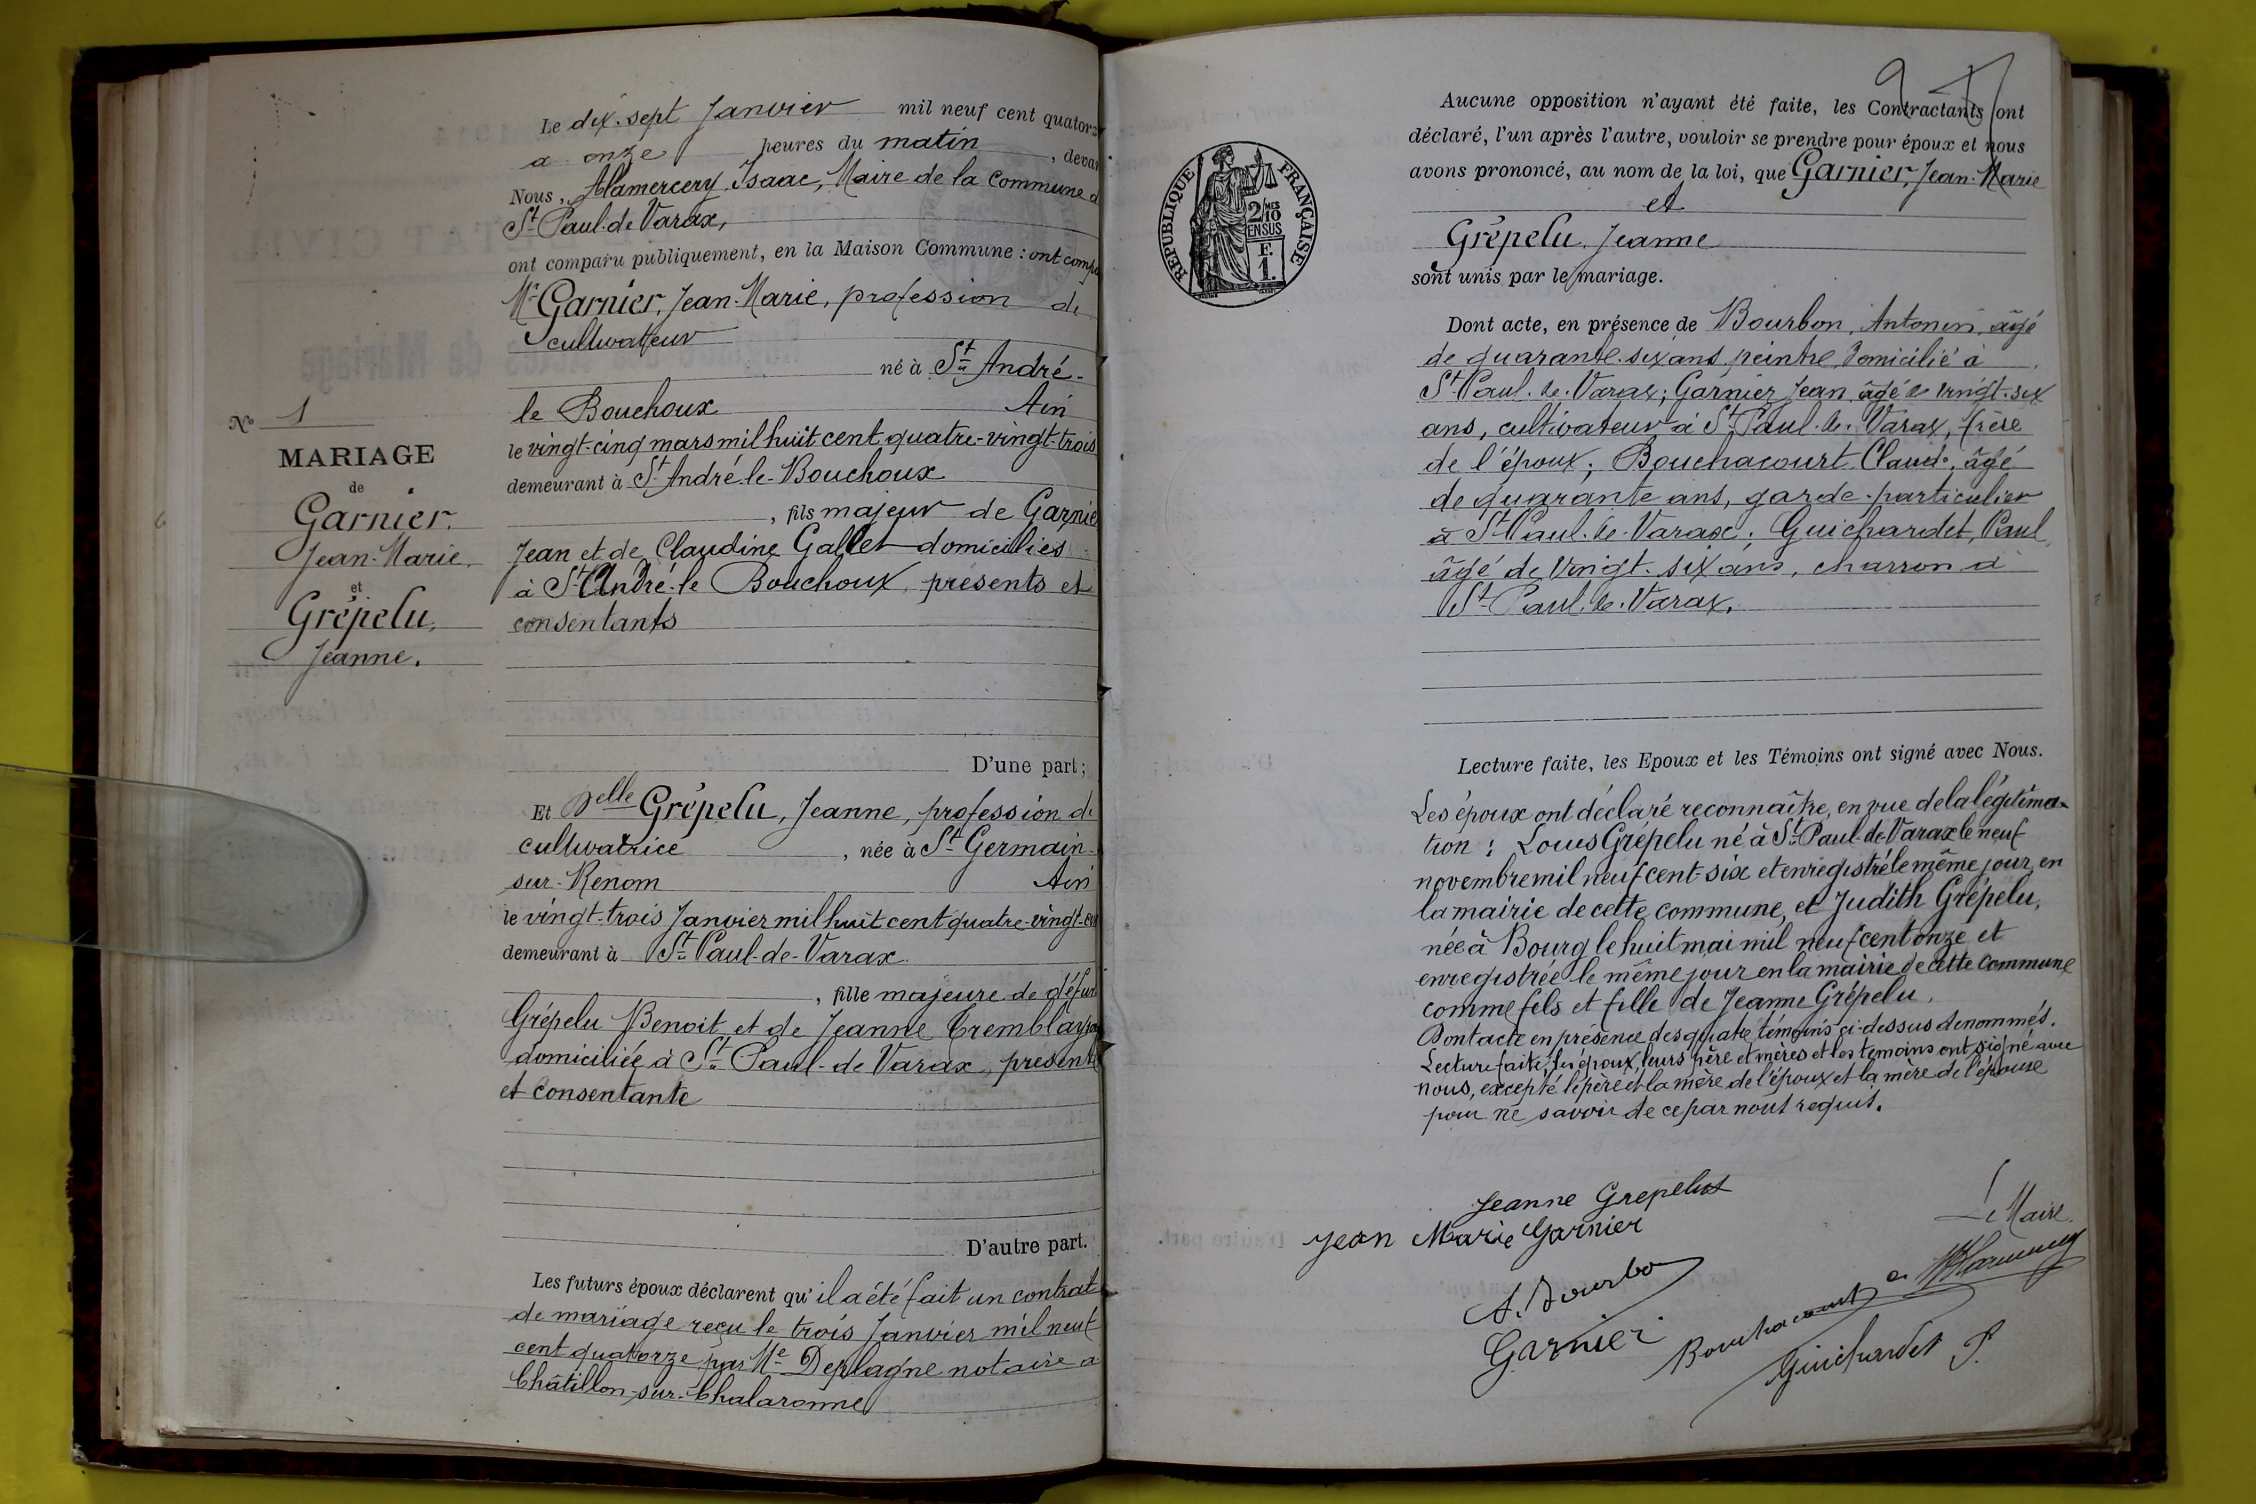 Le dix-sept Janvier mil neuf cent quator
a onze heures du matin, devan
Nous, Alamercery Isaac, Maire de la Commune d
St Paul-de Varax,
ont comparu publiquement, en la Maison Commune : ont compa
Mr Garnier, Jean-Marie, profession de
cultivateur
né à St André-
le Bouchoux Ain
le vingt-cinq mars mil huit cent quatre-vingt-trois
demeurant à St André-le-Bouchoux
, fils majeur de Garnie
Jean et de Claudine Gallet domiciliés
à St André-le Bouchoux, présents et
consentants
D'une part;
No 1
MARIAGE
de
Garnier.
Jean-Marie,
et
Grépelu,
Jeanne.
Et Delle Grépelu, Jeanne, profession de
cultivatrice, née à St Germain-
sur-Renom Ain
le vingt-trois Janvier mil huit cent quatre-vingt-
demeurant à St Paul-de-Varax
, fille majeure de défun
Grépelu Benoit et de Jeanne
domiciliée à St Paul-de Varax, présente
et consentante
D'autre part.
Les futurs époux déclarent qu'il a été fait un contrat
de mariage reçu le trois Janvier mil neuf
cent quatorze par Me Deplagne notaire a
Châtillon-sur-Chalaronne
Aucune opposition n'ayant été faite, les Contractants ont
déclaré, l'un après l'autre, vouloir se prendre pour époux et nous
avons prononcé, au nom de la loi, que Garnier, Jean-Marie
et
Grépelu, Jeanne
sont unis par le mariage.
RÉPUBLIQUE FRANÇAISE
2/10 MES
EN SUS
F.
1.
Dont acte, en présence de Bourbon, Antonin, âgé
de quarante-six ans peintre domicilié à
St Paul-de-Varax; Garnier Jean âgé de vingt-six
ans, cultivateur à St Paul-de-Varax, frère
de l'époux; Bouchacourt Claude, âgé
de quarante ans, garde-particulier
à St Paul-de-Varax; Guichardet, Paul
âgé de vingt-six ans, charron à
St Paul-de-Varax.
Lecture faite, les Epoux et les Témoins ont signé avec Nous.
Les époux ont déclaré reconnaître, en vue de la légitima-
tion : Louis Grépelu né à St Paul-de-Varax le neuf
novembre mil neuf cent-six et enregistré le même jour en
la mairie de cette commune, et Judith Grépelu,
née à Bourg le huit mai mil neuf cent onze et
enregistrée le même jour en la mairie de cette commune
comme fils et fille de Jeanne Grépelu.
Dont acte en présence des quatre témoins ci-dessus dénommés.
Lecture faite, les époux, leurs père et mères et les témoins ont signé avec
nous, excepté le père et la mère de l'époux et la mère de l'épouse
pour ne savoir de ce par nous requis.
Jeanne Grepelu
Jean Marie Garnier
Le Maire
A. Bourbon
Garnier
Bouchacourt
Guichardet P.